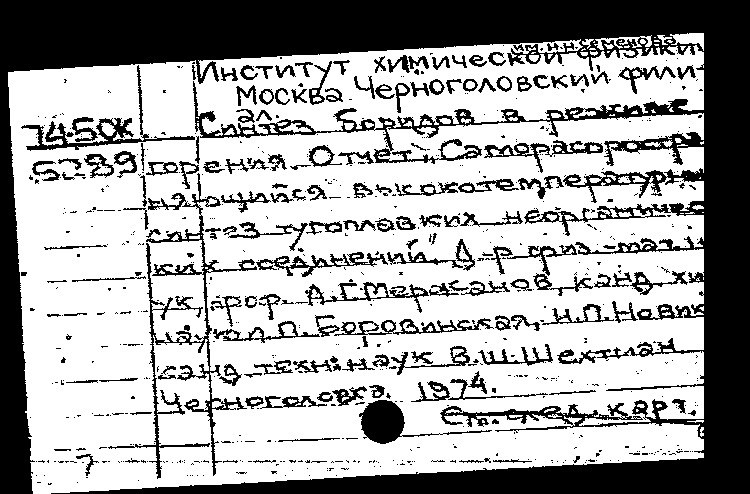 им. Н.Н.Семенова
Институт химической физики
Москва Черноголовский фили-
ал.
7450К Синтез боридов в режиме
5289 горения. Отчет „Самораспростра
няющийся высокотемпературн
синтез тугоплавких неорганичес
ких соединений". Д-р физ.-мат. н
ук, проф. А.Г.Мержанов, канд. хи
наук Л.П. Боровинская, Н.П.Новик
канд. техн. наук В.Ш.Шехтман
Черноголовка. 1974.
См. след. карт.
7